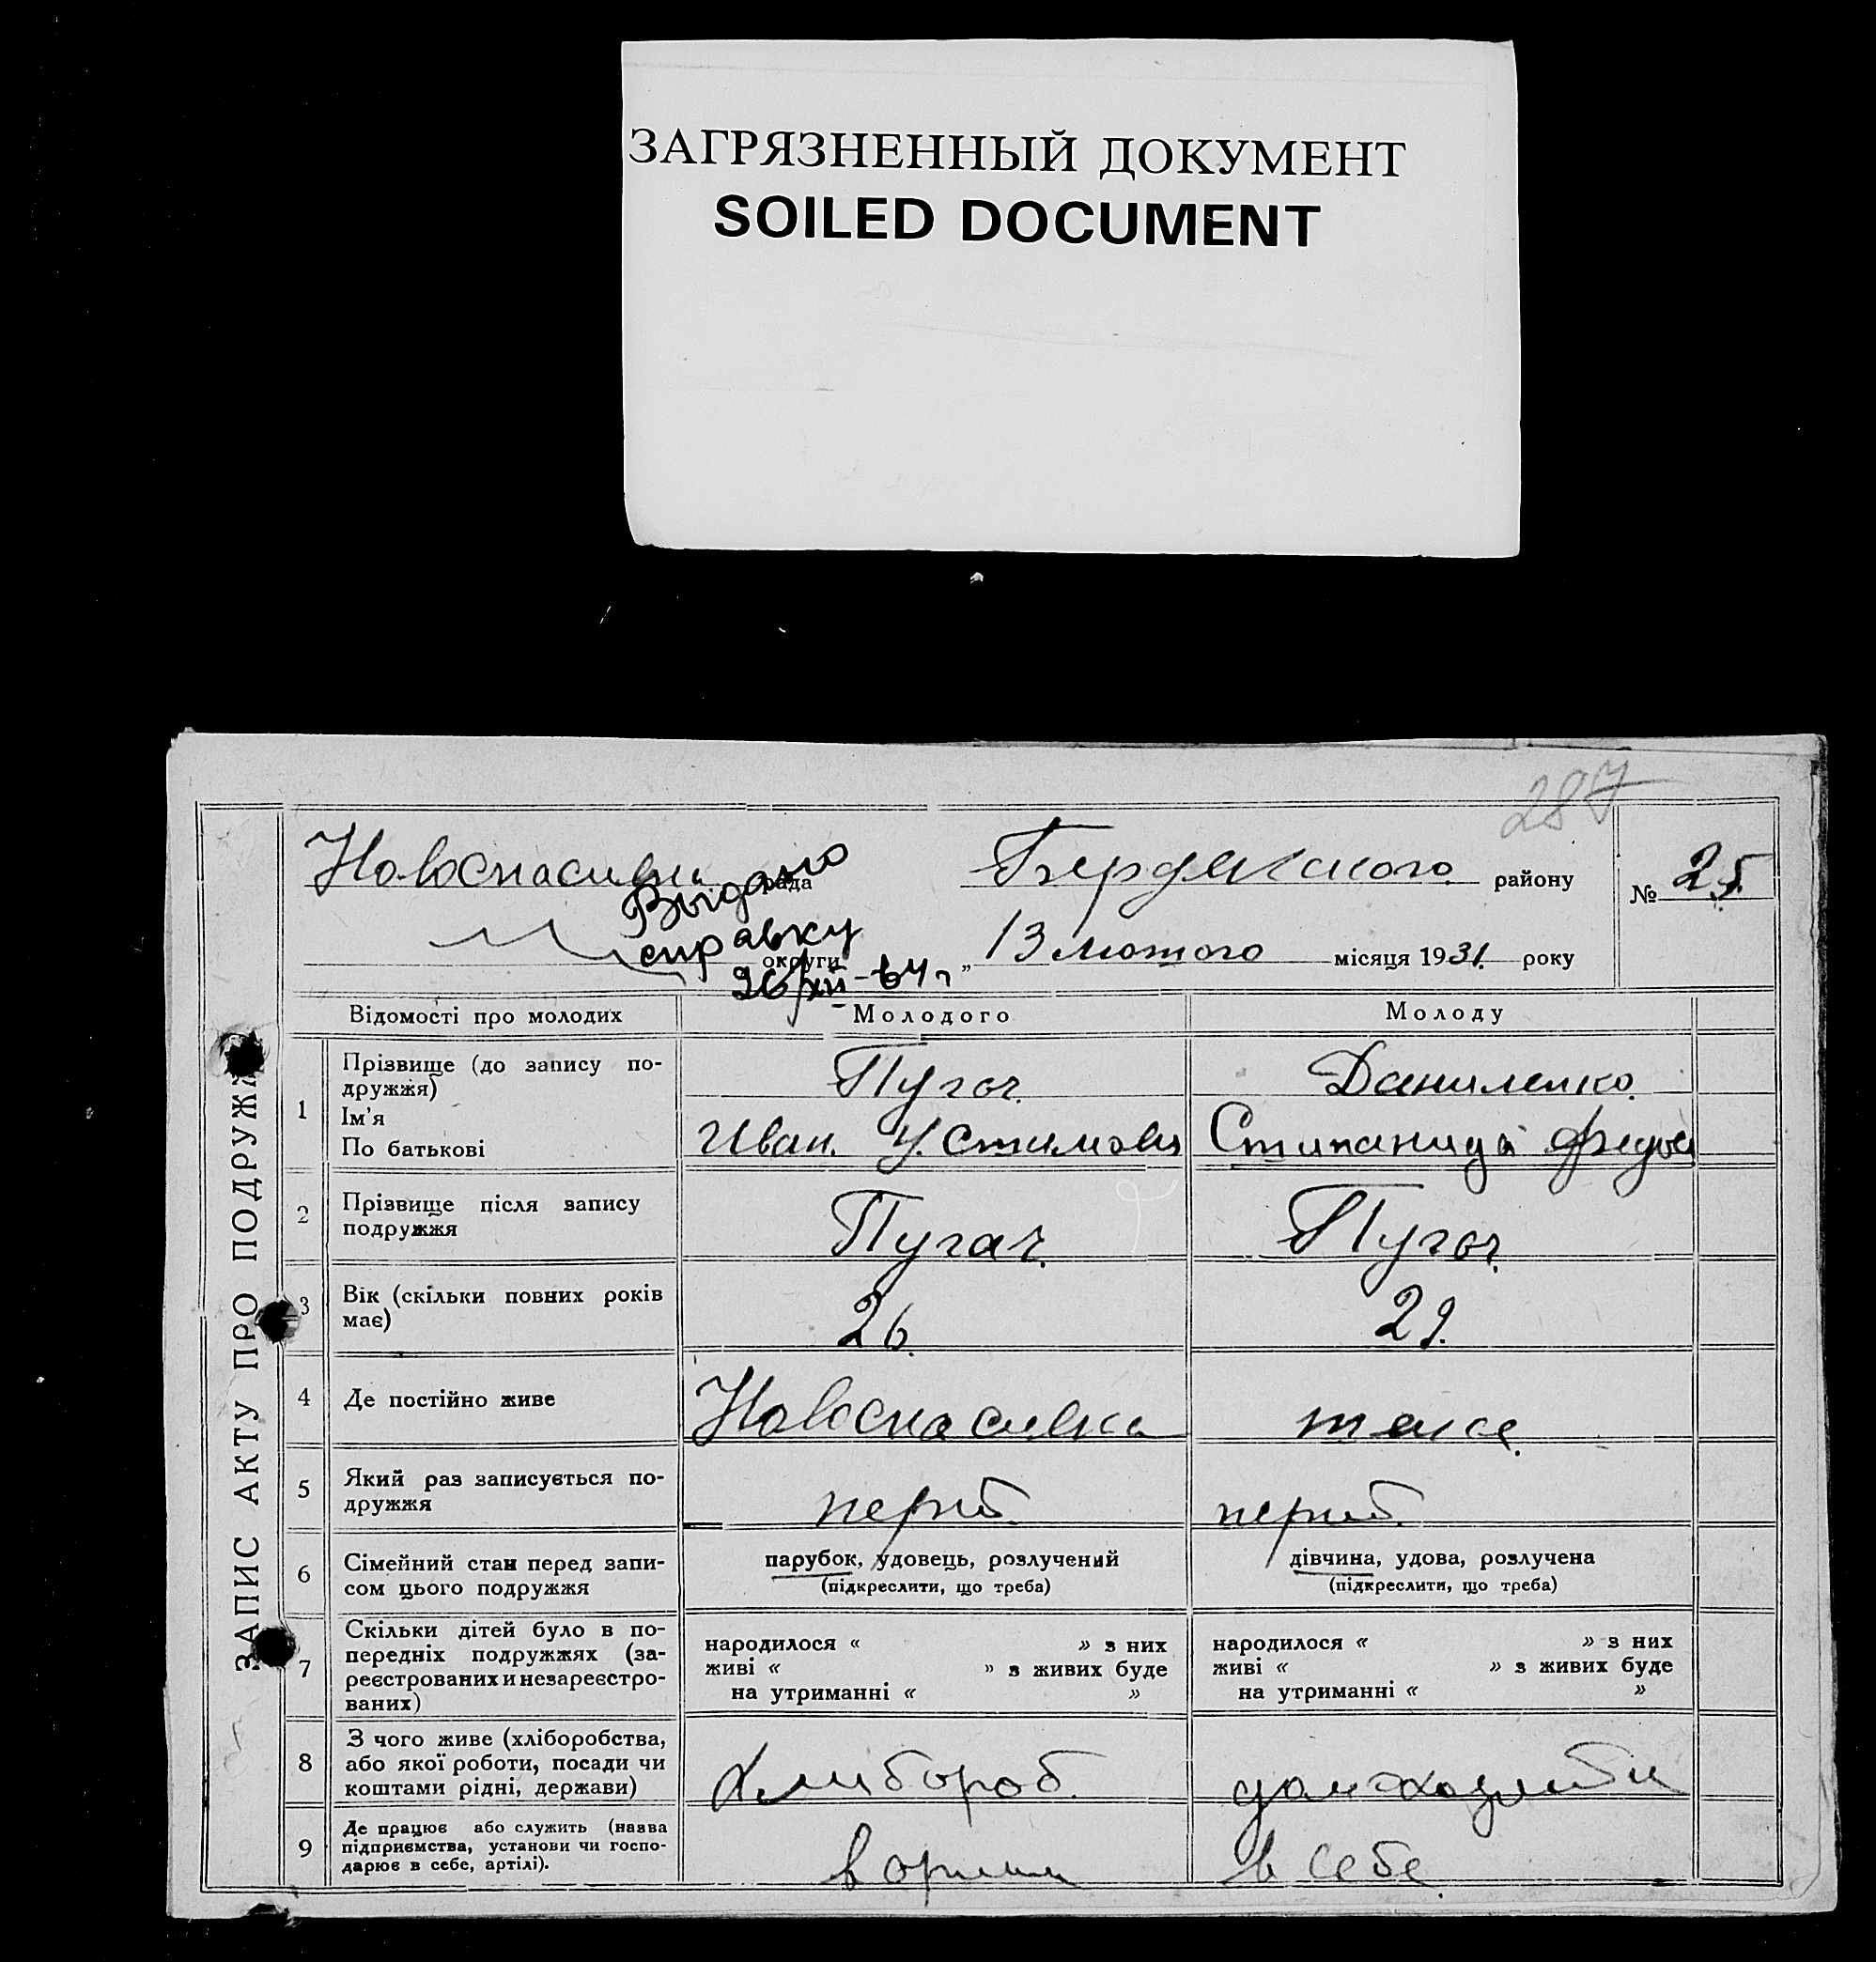 ЗАГРЯЗНЕННЫЙ ДОКУМЕНТ
SOILED DOCUMENT
287
Новоспасивка рада Бердянского району № 25
Выдано
справку
26/XII-64 г
округи „13 лютого місяця 1931. року
ЗАПИС АКТУ ПРО ПОДРУЖЖ
Відомості про молодих Молодого Молоду
1 Прізвище (до запису по-
дружжя) Пугач. Даниленко.
Ім'я
По батькові Иван. Устимови Стипанида Федос
2 Прізвище після запису
подружжя Пугач. Пугач.
3 Вік (скільки повних років
має) 26. 29.
4 Де постійно живе Новоспасивка таксе.
5 Який раз записується по-
дружжя перш. перш.
6 Сімейний стан перед запи-
сом цього подружжя
парубок, удовець, розлучений
(підкреслити, що треба)
дівчина, удова, розлучена
(підкреслити, що треба)
7 Скільки дітей було в по-
передніх подружжях (за-
реєстрованих и незареєстро-
ваних)
народилося « » з них
живі « » з живих буде
на утриманні « »
народилося « » з них
живі « » з живих буде
на утриманні « »
8 З чого живе (хліборобства,
або якої роботи, посади чи
коштами рідні, держави)
хлибороб.
9 Де працює або служить (назва
підприємства, установи чи госпо-
дарює в себе, артілі).
в в себе.